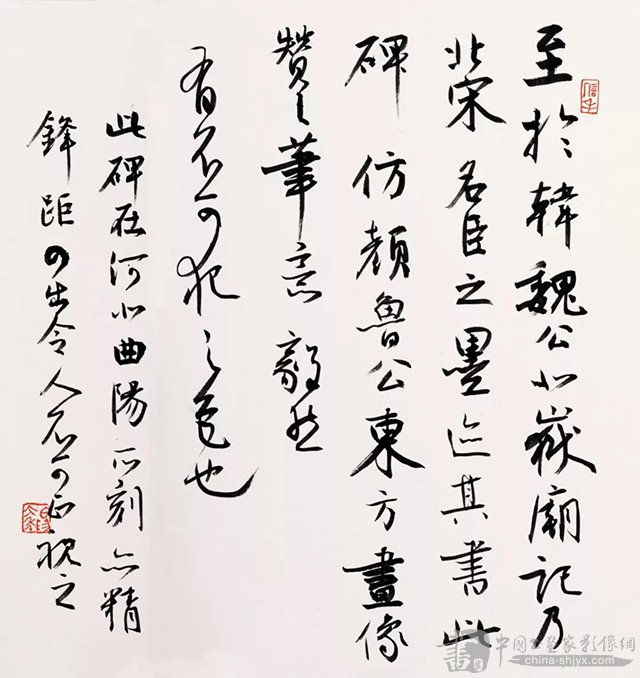 至於韓魏公北嶽廟記乃
北宋名臣之墨迹其書此
碑仿顏魯公東方畫像
贊之筆意毅然
有不可犯之色也
此碑在河北曲陽石刻亦精
鋒距四出令人不可正視之
中國書畫家影像網
china-shjyx.com